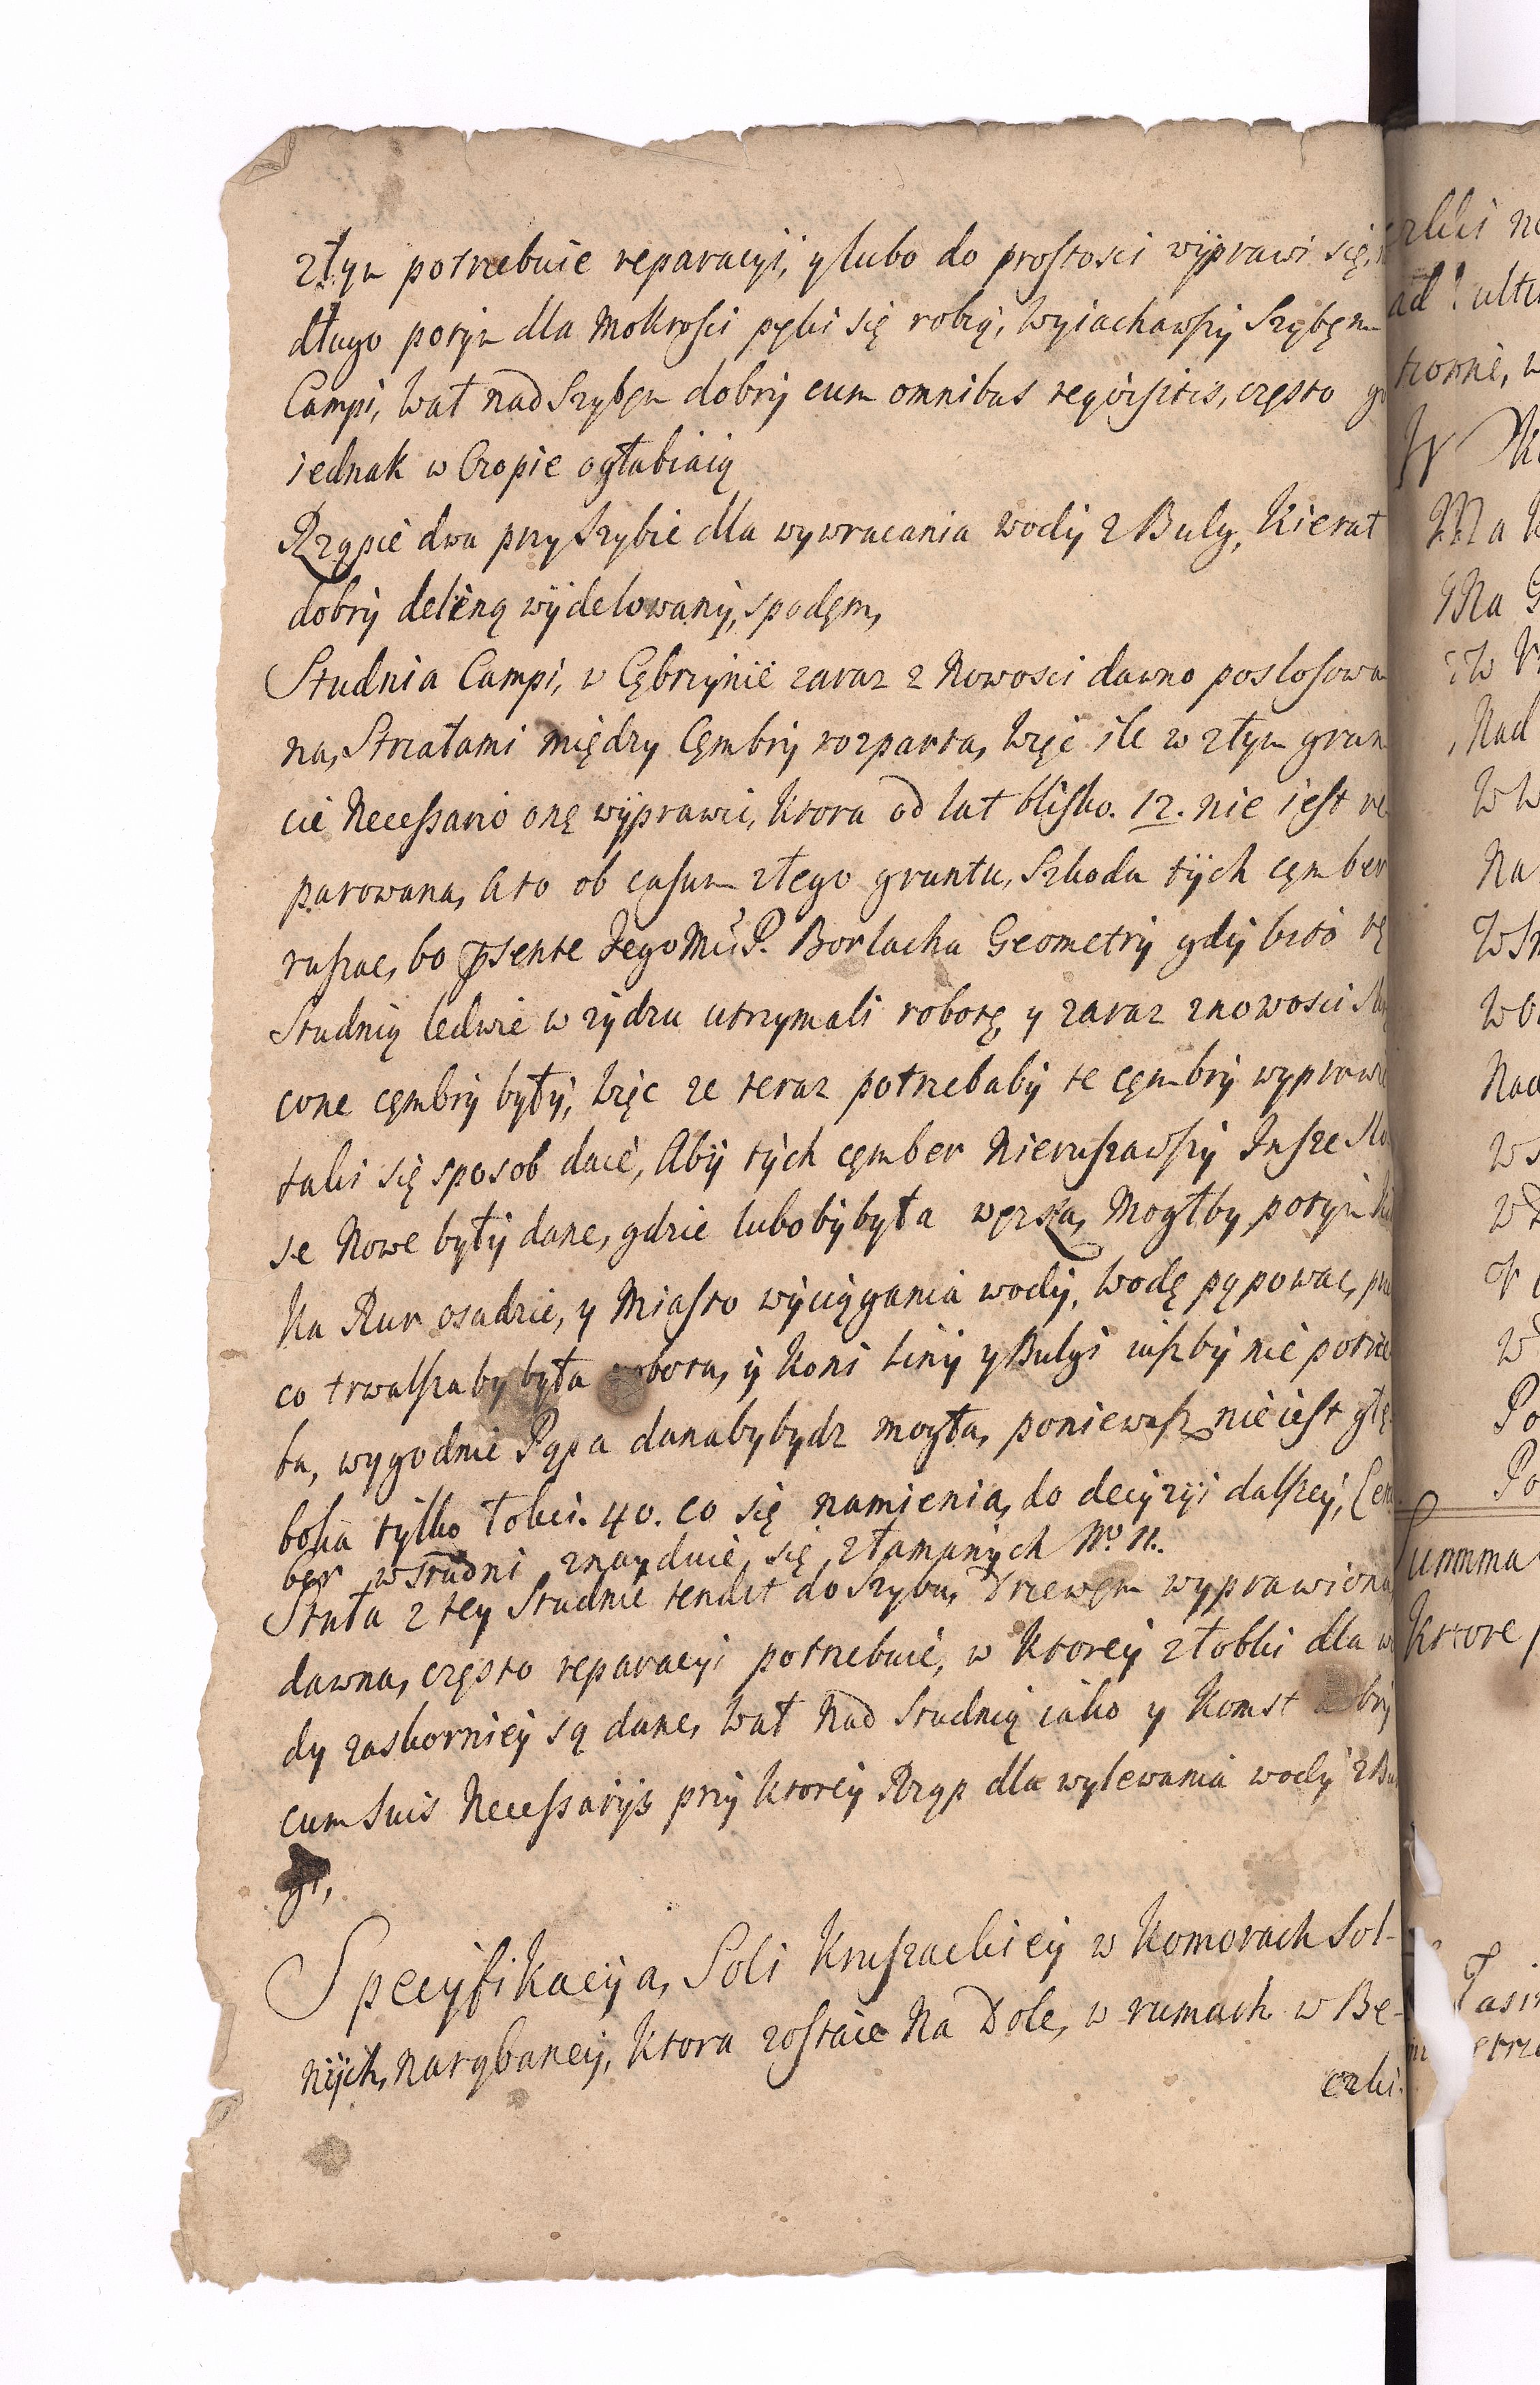 złym potrzebuie reparacyi, y lubo do prostosci wyprawi się,
długo potym dla Mokrosci pęki się robią, Wyiachawszy Szybęm
Campi, Wał nad Szybęm dobry cum omnibus reqvisitis, często
iednak w Czopie ogłabiaią
Rząpie dwa przy Szybie dla wywracania Wody z Bulg, Kierat
dobry deliną wydelowany, spodęm,
Studnia Campi, w Cębrzynie zaraz z Nowosci dawno poslosowa
na, Strzałami między Cęmbry rozparta, Więc ile w złym grun
cie Necessario onę wyprawić, Ktora od lat blisko. 12. nie iest re
parowana, Ato ob casum złego gruntu, Szkoda tych cęmber
ruszac, bo psente Jego Mci P. Borlacha Geometry gdy bito tę
Studnią ledwie w zydzu utrzymali robotę, y zaraz z nowosci
cone cęmbry były, Więc ze teraz potrzebaby te cęmbry wyprawić
taki się sposob daie, Aby tych cęmber Nieruszawszy Insze
se Nowe były dane, gdzie luboby była węzsza, Mogłby potym
Na Rur osadzie, y Miasto wyciągania wody, Wodę pąpowac,
co trwalsza by była robota, y Koni Liny y Bulgi iuszby nie potrze
ba, wygodnie Pąpa danaby bydz mogła, poniewasz nie iest głę
boka tylko Łokci. 40. co się namienia, do decyzyi dalszey,
ber w Studni znayduie się złamanych No. 11.
Sztuła z tey Studnie tendit do Szybu, Drzewęm wyprawiona
dawna, często reparacyi potrzebuie, w Ktorey złobki dla
dy zaskorniey są dane, Wał Nad Studnią iako y Komst dobry
cum Suis Necessarys przy Ktorey Rząp dla wylewania wody z Bul
gi,
Specyfikacyia, Soli Kruszackiey w Komorach Sol-
nych, Narąbaney, Ktora zostaie Na Dole, w rumach w Be-
czki.